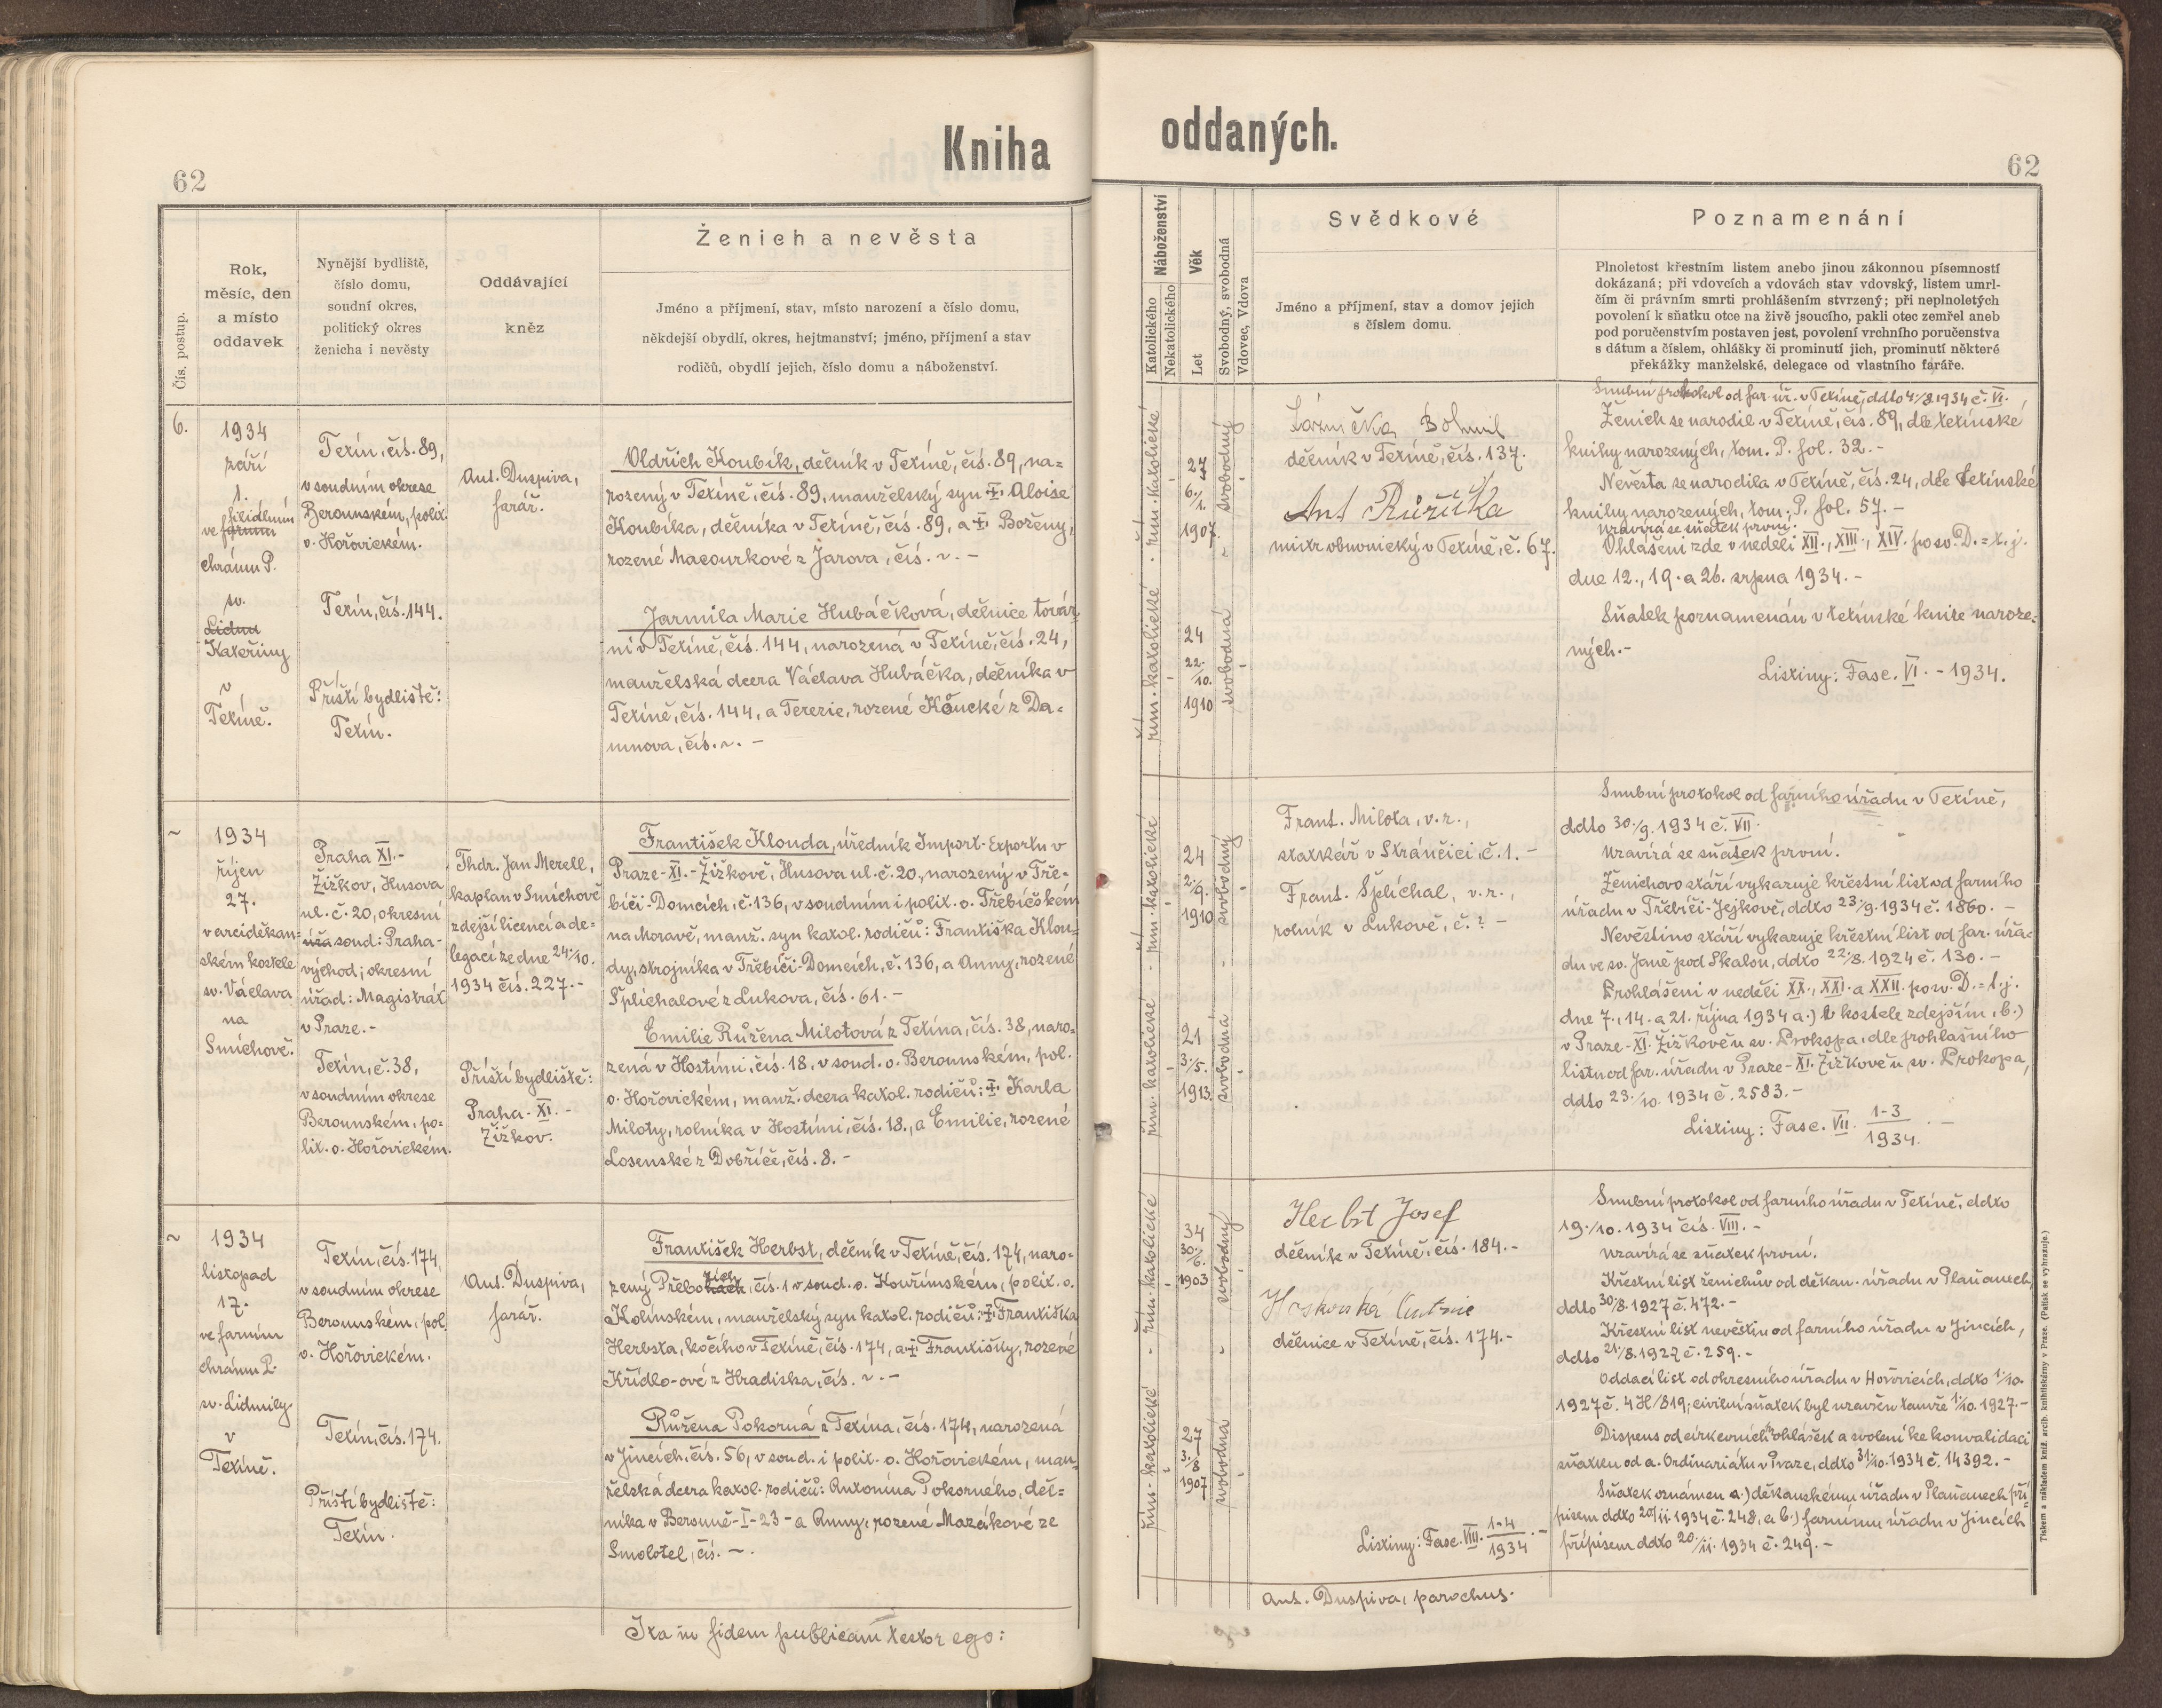 Kniha
oddaných.
62
62
Čís. postup.
Rok,
měsíc, den
a místo
oddavek
Nynější bydliště,
číslo domu,
soudní okres,
politický okres
ženicha i nevěsty
Oddávající
kněz
Ženich a nevěsta
Jméno a příjmení, stav, místo narození a číslo domu,
někdejší obydlí, okres, hejtmanství; jméno, příjmení a stav
rodičů, obydlí jejich, číslo domu a náboženství.
Náboženství
Katolického
Nekatolického
Věk
Let
Svobodný, svobodná
Vdovec, Vdova
Svědkové
Jméno a příjmení, stav a domov jejich
s číslem domu.
Poznamenání
Plnoletost křestním listem anebo jinou zákonnou písemností
dokázaná; při vdovcích a vdovách stav vdovský, listem umrl-
čím či právním smrti prohlášením stvrzený; při neplnoletých
povolení k sňatku otce na živě jsoucího, pakli otec zemřel aneb
pod poručenstvím postaven jest, povolení vrchního poručenstva
s dátum a číslem, ohlášky či prominutí jich, prominutí některé
překážky manželské, delegace od vlastního faráře.
6.
1934
září
1.
filiálním
ve farním
chrámu P.
sv.
Lidm
Kateřiny
v
Tetíně.
Tetín, čís. 89,
v soudním okrese
Berounském, polit.
o. Hořovickém.
Tetín, čís. 144.
Příští bydliště:
Tetín.
Ant. Duspiva,
farář.
Oldřich Koubík, dělník v Tetíně, čís. 89, na=
rozený v Tetíně, čís. 89, manželský syn † Aloise
Koubíka, dělníka v Tetíně, čís. 89, a † Boženy,
rozené Macourkové z Jarova, čís. ~. -
Jarmila Marie Hubáčková, dělnice továr=
ní v Tetíně, čís. 144, narozená v Tetíně, čís. 24,
manželská dcera Václava Hubáčka, dělníka v
Tetíně, čís. 144, a Terezie, rozené Koucké z Da=
mnova, čís. ~. -
řím. katolické
27
6./1.
1907.
svobodný
řím. katolické
24
22./10.
1910
svobodná
Láznička Bohmil
dělník v Tetíně, čís. 137.
Ant Růžička
mistr obuvnický v Tetíně, č. 67.
Snubní protokol od far. úř. v Tetíně, ddto 4./8. 1934 č. VI.
Ženich se narodil v Tetíně, čís. 89, dle tetínské
knihy narozených, tom. P. fol. 32. -
Nevěsta se narodila v Tetíně, čís. 24, dle tetínské
knihy narozených, tom. P. fol. 57. -
Uzavírá se sňatek první.
Ohlášeni zde v neděli XII., XIII., XIV. po sv. D. = t. j.
dne 12., 19. a 26. srpna 1934. -
Sňatek poznamenán v tetínské knize naroze=
ných. -
Listiny: Fasc. VI. - 1934.
~
1934
říjen
27.
v arciděkan=
ském kostele
sv. Václava
na
Smíchově.
Praha XI.-
Žižkov, Husova
ul. č. 20, okresní
úřa soud: Praha-
východ; okresní
úřad: Magistrát
v Praze. -
Tetín, č. 38,
v soudním okrese
Berounském, po=
lit. o. Hořovickém.
Thdr. Jan Merell,
kaplan v Smíchově
zdejší licencí a de=
legací ze dne 24./10.
1934 čís. 227. -
Příští bydliště:
Praha - XI. -
Žižkov.
František Klouda, úředník Import-Exportu v
Praze-XI.-Žižkově, Husova ul. č. 20, narozený v Tře=
bíči-Domcích, č. 136, v soudním i polit. o. Třebíčském
na Moravě, manž. syn katol. rodičů: Františka Klou=
dy, strojníka v Třebíči-Domcích, č. 136, a Anny, rozené
Šplíchalové z Lukova, čís. 61. -
Emilie Růžena Milotová z Tetína, čís. 38, naro=
zená v Hostími, čís. 18, v soud. o. Berounském, pol.
o. Hořovickém, manž. dcera katol. rodičů: † Karla
Miloty, rolníka v Hostími, čís. 18., a Emilie, rozené
Losenské z Dobříče, čís. 8. -
řím. katolické
24
2./9.
1910
svobodný
řím. katolické
21
3./5.
1913.
svobodná
Frant. Milota, v. r.,
statkář v Strančici, č. 1. -
Frant. Šplíchal, v. r.,
rolník v Lukově, č. ? -
Snubní protokol od farního úřadu v Tetíně,
ddto 30./9. 1934 č. VII.
Uzavírá se sňatek první.
Ženichovo stáří vykazuje křestní list od farního
úřadu v Třebíči-Jejkově, ddto 23./9. 1934 č. 1860. -
Nevěstino stáří vykazuje křestní list od far. úřa=
du ve sv. Janě pod Skalou, ddto 22./8. 1924 č. 130. -
Prohlášeni v neděli XX., XXI. a XXII. po sv. D. = t. j.
dne 7., 14. a 21. října 1934 a.) v kostele zdejším, b.)
v Praze-XI. Žižkově u sv. Prokopa, dle prohlašního
listu od far. úřadu v Praze-XI. Žižkově u sv. Prokopa,
ddto 23./10. 1934 č. 2583. -
Listiny: Fasc. VII. 1-3/1934. -
~
1934
listopad
17.
ve farním
chrámu P.
sv. Lidmily
v
Tetíně.
Tetín, čís. 174,
v soudním okrese
Berounském, pol.
o. Hořovickém.
Tetín, čís. 174.
Příští bydliště:
Tetín.
Ant. Duspiva,
farář.
František Herbst, dělník v Tetíně, čís. 174, naro=
zich
zený Přebohách, čís. 1, v soud. o. Kouřimském, polit. o.
Kolínském, manželský syn katol. rodičů: † Františka
Herbsta, kočího v Tetíně, čís. 174, a † Františky, rozené
Křídlo-ové z Hradiska, čís. ~. -
Růžena Pokorná z Tetína, čís. 174, narozená
v Jincích, čís. 56, v soud. i polit. o. Hořovickém, man=
želská dcera katol. rodičů: Antonína Pokorného, děl=
níka v Berouně-I-23-a Anny, rozené Mazákové ze
Smolotel, čís. ~.
řím. katolické
34
30./6.
1903
svobodný
řím. katolické
27
3./8
1907
svobodná
Herbst Josef
dělník v Tetíně, čís. 184. -
dělnice v Tetíně, čís. 174. -
Listiny: Fasc. VIII. 1-4/1934. -
Snubní protokol od farního úřadu v Tetíně, ddto
19./10. 1934 čís. VIII. -
Uzavírá se sňatek první.
Křestní list ženichův od děkan. úřadu v Plaňanech,
ddto 30./8. 1927 č. 472. -
Křestní list nevěstin od farního úřadu v Jincích,
ddto 21./8. 1927 č. 259. -
Oddací list od okresního úřadu v Hořovicích, ddto 1./10.
1927 č. 4H/819; civilní sňatek byl uzavřen tamže 1./10. 1927. -
Dispens od církevních ohlášek a svolení ke konvalidaci
sňatku od a. Ordinariátu v Praze, ddto 31./10. 1934 č. 14392. -
Sňatek oznámen a.) děkanskému úřadu v Plaňanech pří=
pisem ddto 20./11. 1934 č. 248, a b.) farnímu úřadu v Jincích
přípisem ddto 20./11. 1934 č. 249. -
Ita in fidem publicam testor ego:
Ant. Duspiva, parochus.
Tiskem a nákladem kníž. arcib. knihtiskárny v Praze. (Patisk se vyhrazuje.)